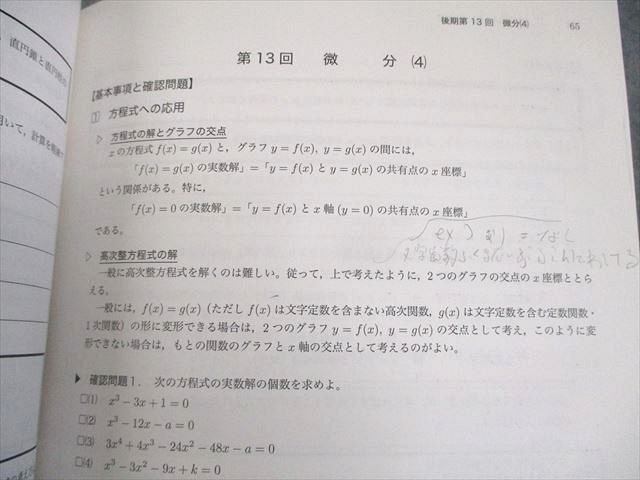 後期第13回 微分⑷ 65
第13回 微 分 ⑷
【基本事項と確認問題】
① 方程式への応用
▷ 方程式の解とグラフの交点
xの方程式 f(x) = g(x) と,グラフ y = f(x), y = g(x) の間には,
「f(x) = g(x) の実数解」=「y = f(x) と y = g(x) の共有点の x 座標」
という関係がある。特に,
「f(x) = 0 の実数解」=「y = f(x) と x 軸 (y = 0) の共有点の x 座標」
である。
▷ 高次整方程式の解
一般に高次整方程式を解くのは難しい。従って,上で考えたように,2つのグラフの交点の x 座標ととら
える。
一般には,f(x) = g(x)(ただし f(x) は文字定数を含まない高次関数,g(x) は文字定数を含む定数関数・
1次関数)の形に変形できる場合は,2つのグラフ y = f(x), y = g(x) の交点として考え,このように変
形できない場合は,もとの関数のグラフと x 軸の交点として考えるのがよい。
▶ 確認問題1. 次の方程式の実数解の個数を求めよ。
□⑴ x³ − 3x + 1 = 0
□⑵ x³ − 12x − a = 0
□⑶ 3x⁴ + 4x³ − 24x² − 48x − a = 0
□⑷ x³ − 3x² − 9x + k = 0
直円錐と直円柱の
用いて,計算を